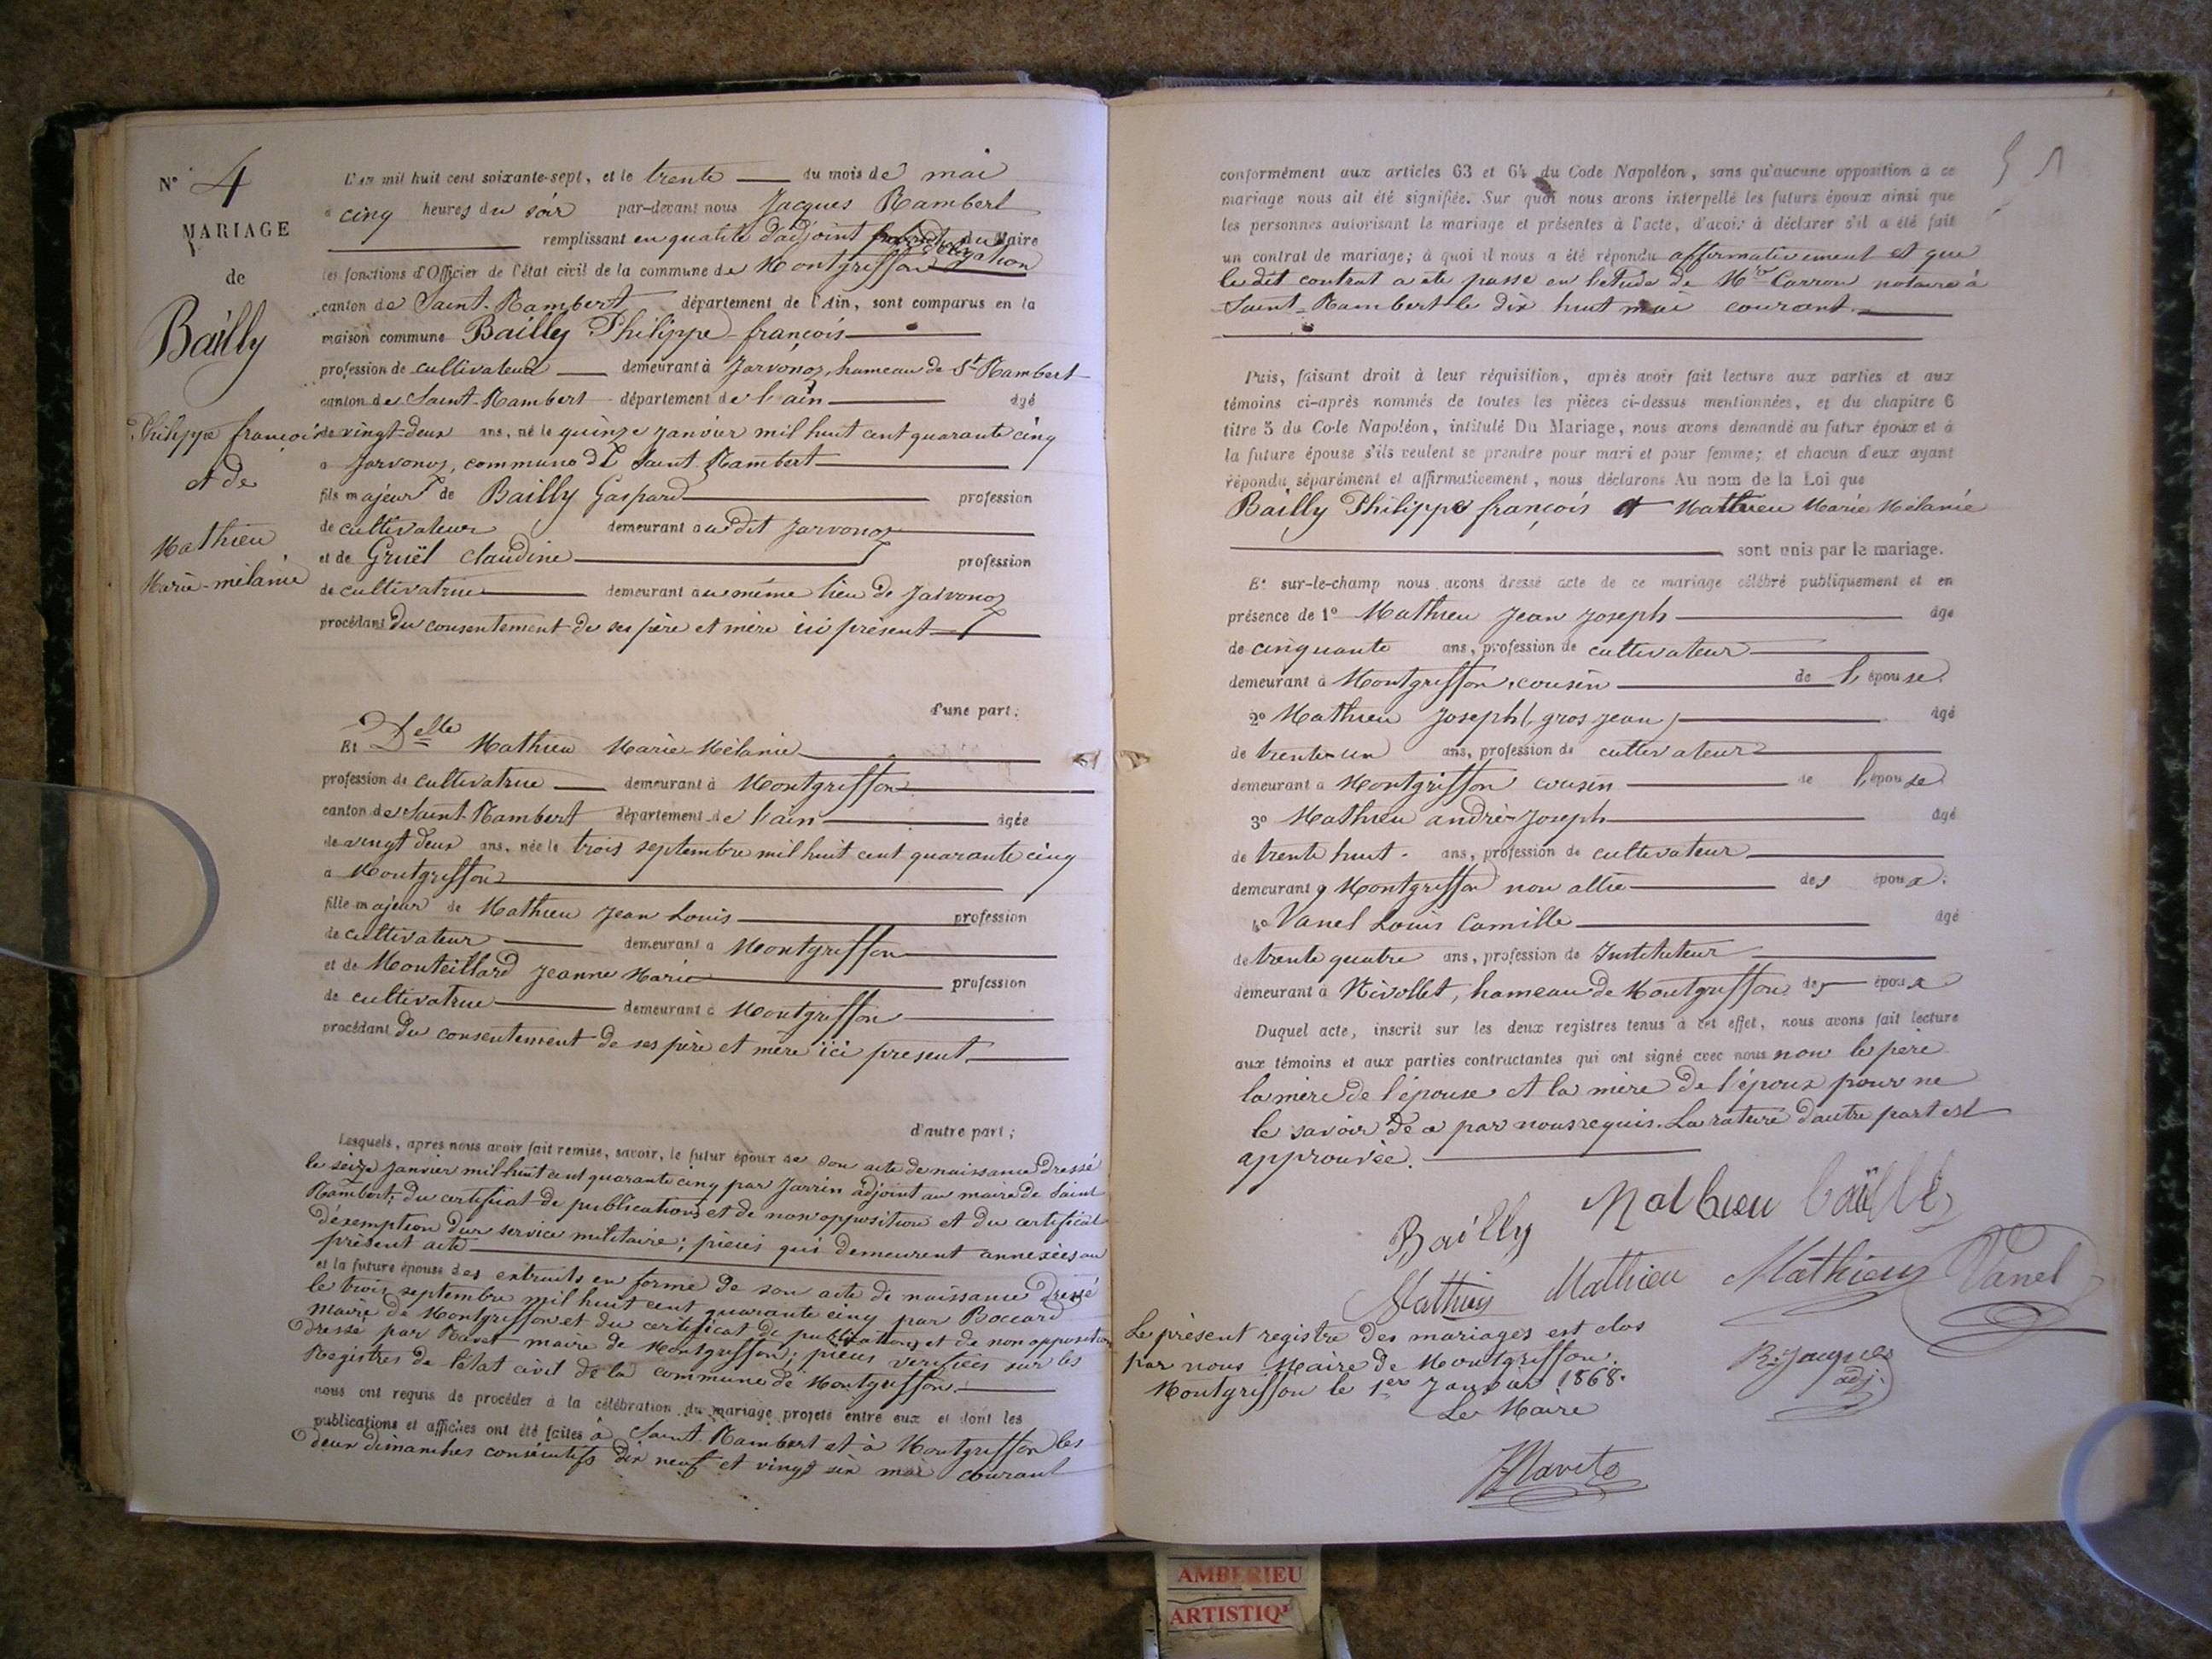 N° 4
MARIAGE
de
Bailly
Philippe françois
et de
Mathieu
Marie-mélanie
L'an mil huit cent soixante-sept, et le trente du mois de mai
à cinq heures du soir par-devant nous Jacques Rambert
remplissant en qualité d'adjoint du Maire
les fonctions d'Officier de l'état civil de la commune de Montgriffon
canton de Saint-Rambert département de l'Ain, sont comparus en la
maison commune Bailly Philippe-françois
profession de cultivateur demeurant à Jarvonoz, hameau de St Rambert
canton de Saint-Rambert département de l'ain âgé
de vingt-deux ans, né le quinze janvier mil huit cent quarante cinq
à Jarvonoz, commune de Saint-Rambert
fils majeur de Bailly Gaspard profession
de cultivateur demeurant au dit Jarvonoz
et de Gruël Claudine profession
de cultivatrice demeurant au même lieu de Jarvonoz
procédant du consentement de ses père et mère ici présent
d'une part;
Et Delle Mathieu Marie-Mélanie
profession de cultivatrice demeurant à Montgriffon
canton de Saint-Rambert département de l'ain âgée
de vingt deux ans, née le trois septembre mil huit cent quarante cinq
à Montgriffon
fille majeur de Mathieu Jean Louis profession
de cultivateur demeurant à Montgriffon
et de Monteillard Jeanne Marie profession
de cultivatrice demeurant à Montgriffon
procédant du consentement de ses père et mère ici présent
d'autre part;
Lesquels, après nous avoir fait remise, savoir, le futur époux de son acte de naissance dressé
le seize janvier mil huit cent quarante cinq par Jarrin adjoint au maire de Saint
Rambert; du certificat de publications et de non opposition et du certificat
d'exemption du service militaire; pièces qui demeurent annexées au
présent acte
et la future épouse des extraits en forme de son acte de naissance dressé
le trois septembre mil huit cent quarante cinq par Boccard
Maire de Montgriffon et du certificat de publications et de non opposition
dressé par Ravet maire de Montgriffon; pièces vérifiées sur les
Registres de l'état civil de la commune de Montgriffon.
nous ont requis de procéder à la célébration du mariage projeté entre eux et dont les
publications et affiches ont été faites à Saint-Rambert et à Montgriffon les
deux dimanches consécutifs dix neuf et vingt six mai courant
51
conformément aux articles 63 et 64 du Code Napoléon, sans qu'aucune opposition à ce
mariage nous ait été signifiée. Sur quoi nous avons interpellé les futurs époux ainsi que
les personnes autorisant le mariage et présentes à l'acte, d'avoir à déclarer s'il a été fait
un contrat de mariage; à quoi il nous a été répondu affirmativement et que
le dit contrat a été passé en l'étude de Mtre Carron notaire à
Saint-Rambert le dix huit mai courant.
Puis, faisant droit à leur réquisition, après avoir fait lecture aux parties et aux
témoins ci-après nommés de toutes les pièces ci-dessus mentionnées, et du chapitre 6
titre 5 du Code Napoléon, intitulé Du Mariage, nous avons demandé au futur époux et à
la future épouse s'ils veulent se prendre pour mari et pour femme; et chacun d'eux ayant
répondu séparément et affirmativement, nous déclarons Au nom de la Loi que
Bailly Philippe françois et Mathieu Marie Mélanie
sont unis par le mariage.
Et sur-le-champ nous avons dressé acte de ce mariage célébré publiquement et en
présence de 1° Mathieu Jean Joseph âgé
de cinquante ans, profession de cultivateur
demeurant à Montgriffon, cousin de l'épouse.
2° Mathieu Joseph (gros jean) âgé
de trente-un ans, profession de cultivateur
demeurant à Montgriffon cousin de l'épouse
3° Mathieu andré-Joseph âgé
de trente huit ans, profession de cultivateur
demeurant à Montgriffon non allié des époux;
4° Vanel Louis Camille âgé
de trente quatre ans, profession de Instituteur
demeurant à Nivollet, hameau de Montgriffon des époux
Duquel acte, inscrit sur les deux registres tenus à cet effet, nous avons fait lecture
aux témoins et aux parties contractantes qui ont signé avec nous non le père
la mère de l'épouse et la mère de l'époux pour ne
le savoir de ce par nous requis. La rature d'autre part est
approuvée.
Bailly Mathieu bailly
Mathieu Mathieu Mathieu Vanel
R. Jacques
adj.
Le présent registre des mariages est clos
par nous Maire de Montgriffon.
Montgriffon le 1er Janvier 1868.
Le Maire
AMBERIEU
ARTISTIQ